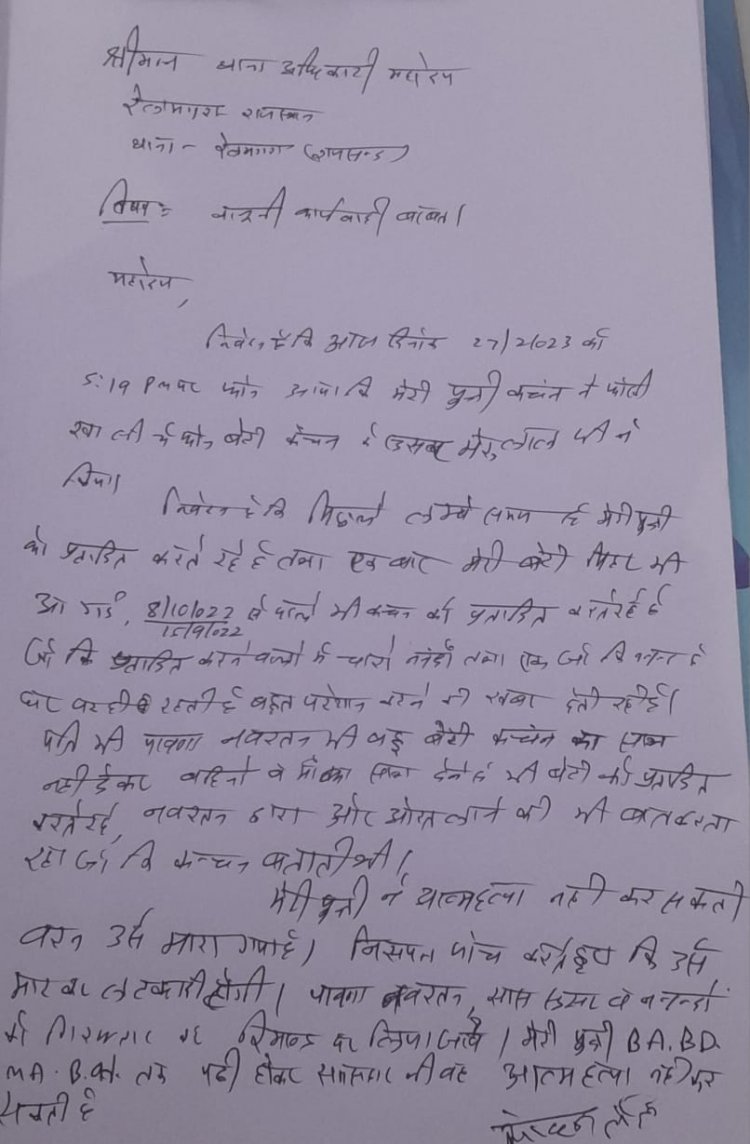 श्रीमान थाना अधिकारी महोदय
रेलमगरा राजस्थान
थाना - रेलमगरा (राजसमन्द)
विषय : कानूनी कार्यवाही बाबत।
महोदय,
निवेदन है कि आज दिनांक 27/2/023 को
5:19 PM पर फोन आया कि मेरी पुत्री कंचन ने फांसी
खा ली ये फोन बेटी कंचन के ससुर भेरुलाल जी ने
किया।
निवेदन है कि पिछले लम्बे समय से मेरी पुत्री
को प्रताडित करते रहे है तथा एक बार मेरी बेटी पिहर भी
आ गई, 8/10/022 से पहले भी कंचन को प्रताडित करते रहे है
15/9/022
जो कि प्रताडित करने वालो में चारो ननंदों तथा एक जो कि ननद है
घर पर ही रहती है बहुत परेशान करने में देती रही है।
पति भी नवरतन भी बेटी कंचन का साथ
नही देकर बहिनो व माँ का साथ देने से भी बेटी को प्रताडित
करते रहे, नवरतन द्वारा और औरत लाने की भी बात करता
रहा जो कि कन्चन बताती थी।
मेरी पुत्री ने आत्महत्या नही कर सकती
वरन उसे मारा गया है। जांच कि उसे
मार कर लटकाई होगी। नवरतन, सास ससुर व ननन्दों
को गिरफ्तार कर रिमाण्ड पर लिया जावे। मेरी पुत्री B.A. B.D.
M.A. तक पढी होकर समझदार थी वह आत्महत्या नही कर
सकती है